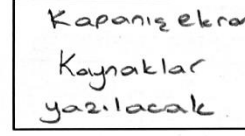 Kapanış ekra
Kaynaklar
yazılacak